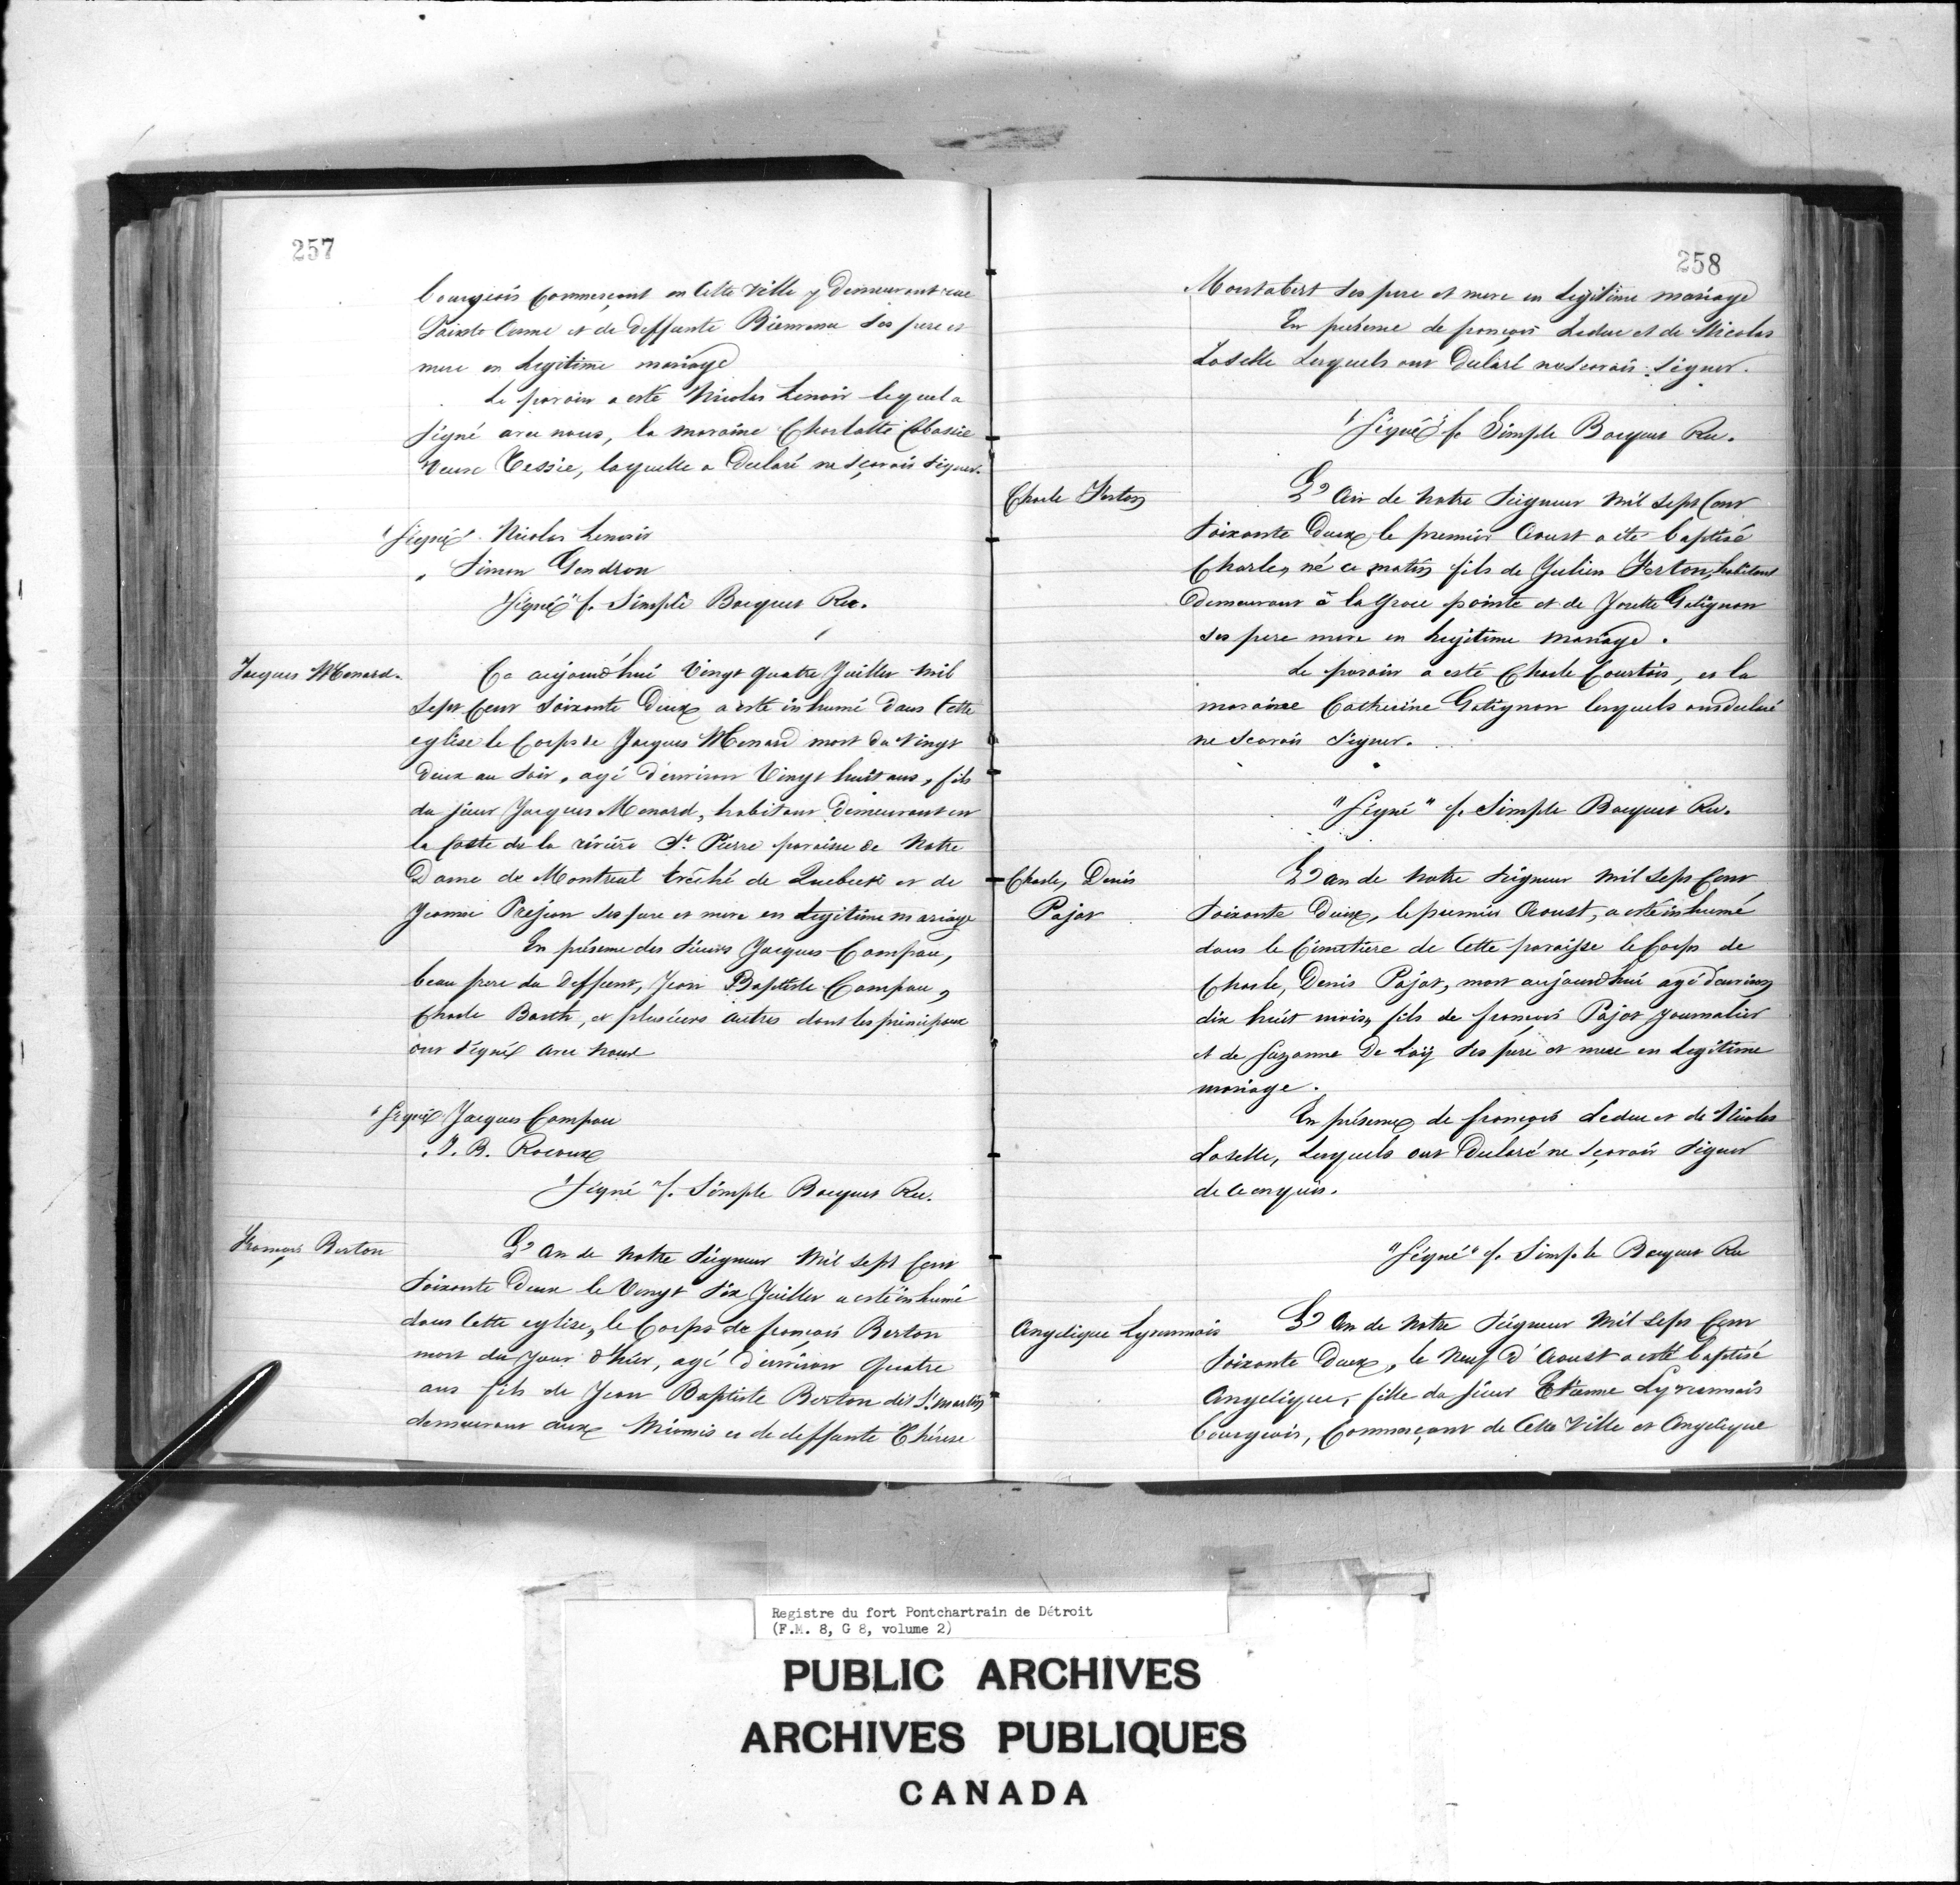 257
bourgeois Commerçant en Cette Ville y Demeurant rue
Sainte Anne et de deffunte Bienvenu Ses pere et
mere en Legitime mariage
Le parain a esté Nicolas Lenoir lequel a
Signé avec nous, la maraine Charlotte
Veuve Tessie, laquelle a Declaré ne Sçavoir Signer.
"Signé" Nicolas Lenoir
" Simon Gendron
"Signé" f. Simple Bocquet Rec.
Jacques Menard.
Ce aujourd'hui Vingt quatre Juillet mil
Sept Cent Soixante Deux a esté inhumé Dans Cette
eglise le Corps de Jacques Menard mort du Vingt
deux au Soir, agé d'environ Vingt huit ans, fils
du Sieur Jacques Menard, habitant Demeurant en
la Coste de la riviere St. Pierre paroisse de Notre
Dame de Montreal Evêché de Quebeck et de
Jeanne Ses pere et mere en Legitime mariage
En présence des Sieurs Jacques Campau,
beau pere du Deffunt, Jean Baptiste Campau,
Charle Barth, et plusieurs autres dont les principaux
ont Signé avec nous
"Signé" Jacques Campau
" J. B. Rocoux
"Signé" f. Simple Bocquet Rec.
François Berton
L'an de Notre Seigneur Mil Sept Cent
Soixante Deux le Vingt Six Juillet a esté inhumé
dans Cette eglise, le Corps de françois Berton
mort du Jour d'hier, agé d'environ Quatre
ans fils de Jean Baptiste Berton dit St. martin
demeurant aux Miamis et de deffunte Thérese
258
Montabert Ses pere et mere en Legitime mariage
En présence de françois Leduc et de Nicolas
Laselle Lesquels ont Declaré ne Scavoir Signer.
"Signé" f. Simple Bocquet Rec.
Charle Ferton
L'An de Notre Seigneur Mil Sept Cent
Soixante Deux, le premier Aoust a été baptisé
Charles, né ce matin fils de Julien Ferton, habitant
Demeurant à la Groce pointe et de Josette Gatignon
Ses pere mere en Legitime Mariage.
Le parain a esté Charle Courtois, et la
maraine Catherine Gatignon lesquels ont declaré
ne Scavoir Signer.
"Signé" f. Simple Bocquet Rec.
Charle, Denis
Pajot
L'an de Notre Seigneur Mil Sept Cent
Soixante Deux, le premier Aoust, a esté inhumé
dans le Cimetiere de Cette paroisse le Corps de
Charle, Denis Pajot, mort aujourd'hui agé d'environ
dix huit mois, fils de francois Pajot Journalier
et de Suzanne De Loÿ Ses pere et mere en Legitime
mariage.
En présence de françois Leduc et de Nicolas
Laselle, Lesquels ont Declaré ne Sçavoir Signer
de ce enquis.
"Signé" f. Simple Bocquet Rec
Angelique Lyrennois
L'An de Notre Seigneur Mil Sept Cent
Soixante Deux, le Neuf d'Aoust a esté baptisé
Angelique, fille du Sieur Etienne Lyrennois
bourgeois, Commerçant de Cette Ville et Angelique
Registre du fort Pontchartrain de Détroit
(F.M. 8, G 8, volume 2)
PUBLIC ARCHIVES
ARCHIVES PUBLIQUES
CANADA